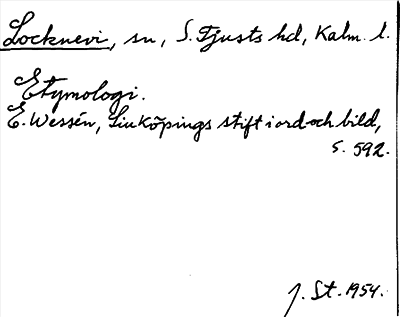 Locknevi, sn, S. Tjusts hd, Kalm. l.
Etymologi.
E. Wessén, Linköpings stift i ord och bild,
s. 592.
J. St. 1954.